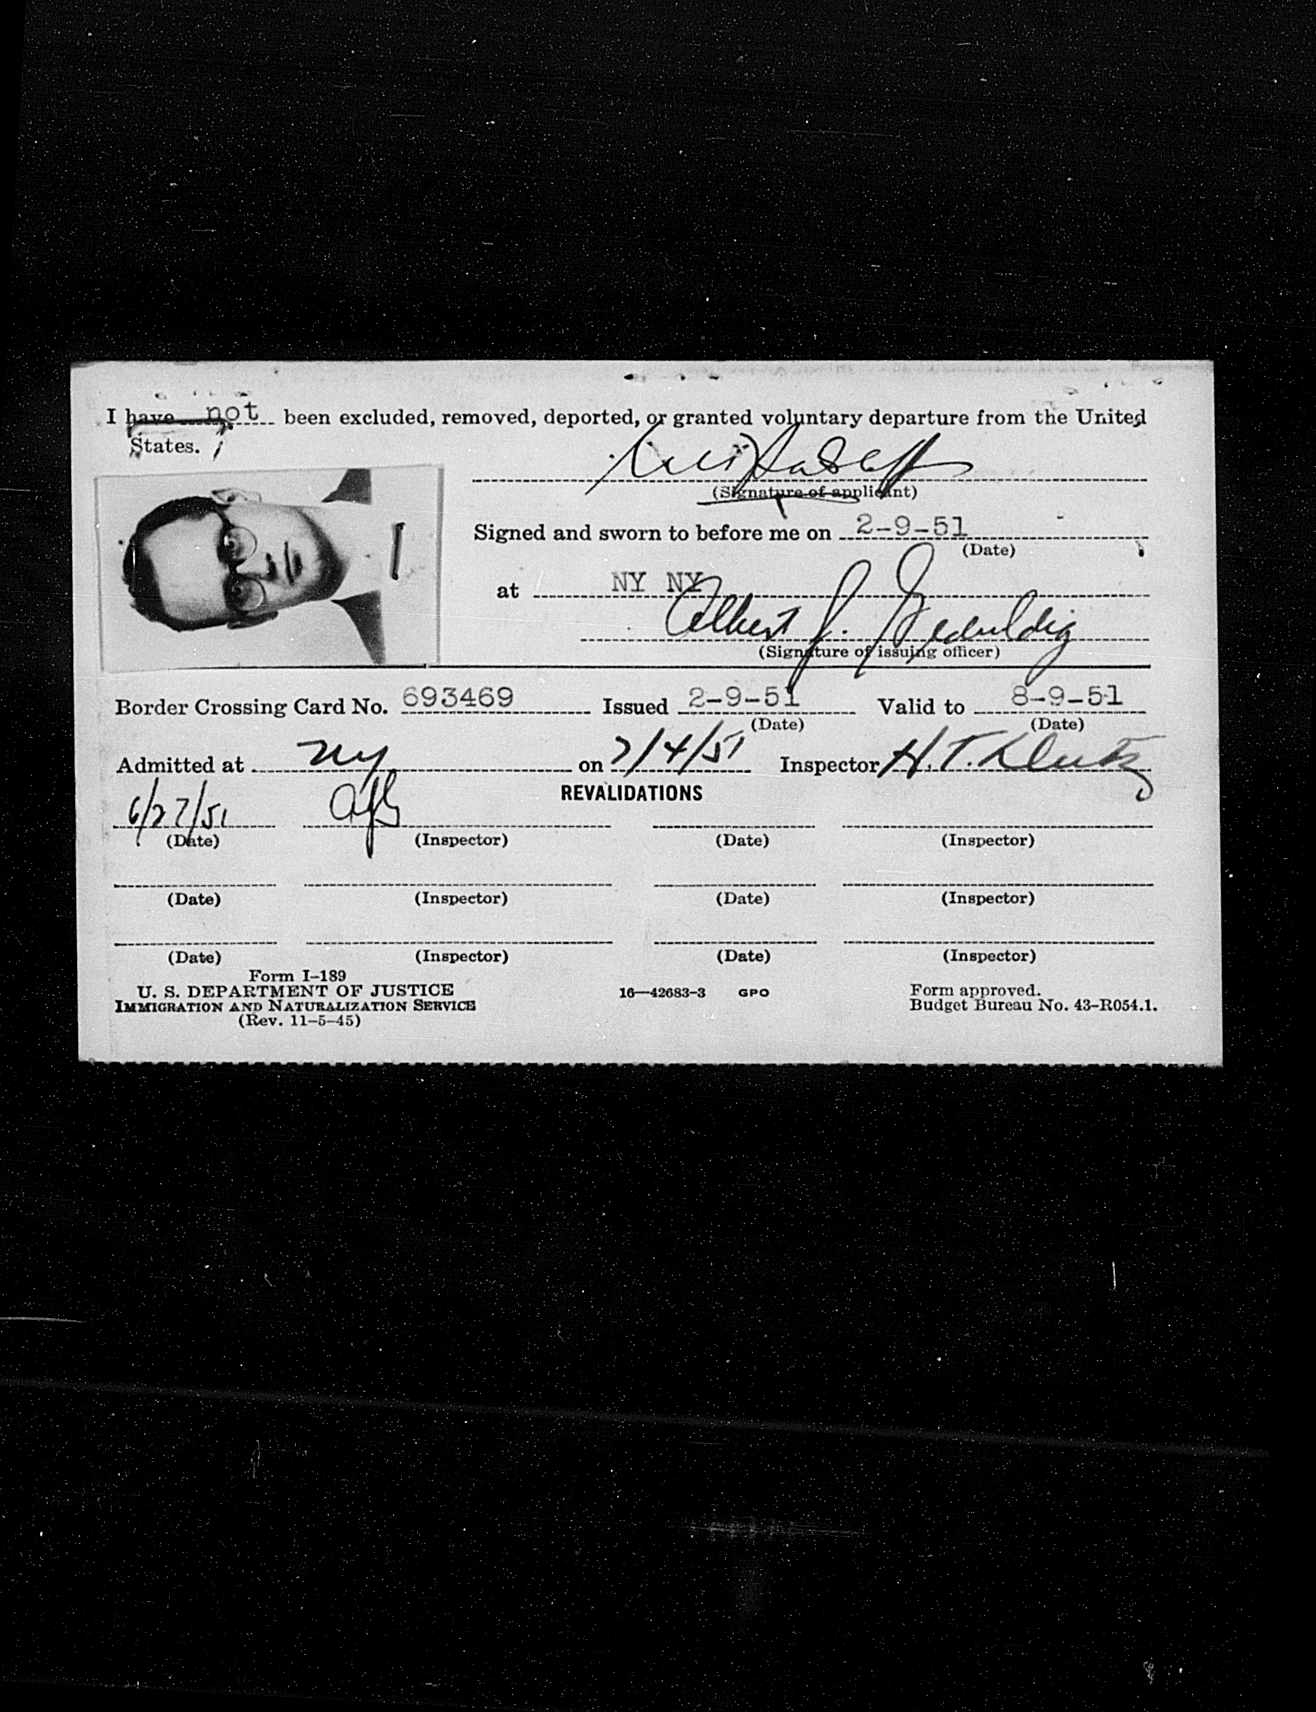 I have not been excluded, removed, deported, or granted voluntary departure from the United
States.
(Signature of applicant)
Signed and sworn to before me on 2-9-51
(Date)
at NY NY
Albert J. Geduldig
(Signature of issuing officer)
Border Crossing Card No. 693469 Issued 2-9-51 Valid to 8-9-51
(Date) (Date)
Admitted at NY on 7/4/51 Inspector H. T.
REVALIDATIONS
6/27/51
(Date) (Inspector) (Date) (Inspector)
(Date) (Inspector) (Date) (Inspector)
(Date) (Inspector) (Date) (Inspector)
Form I-189
U. S. DEPARTMENT OF JUSTICE 16—42683-3 GPO Form approved.
IMMIGRATION AND NATURALIZATION SERVICE Budget Bureau No. 43-R054.1.
(Rev. 11-5-45)